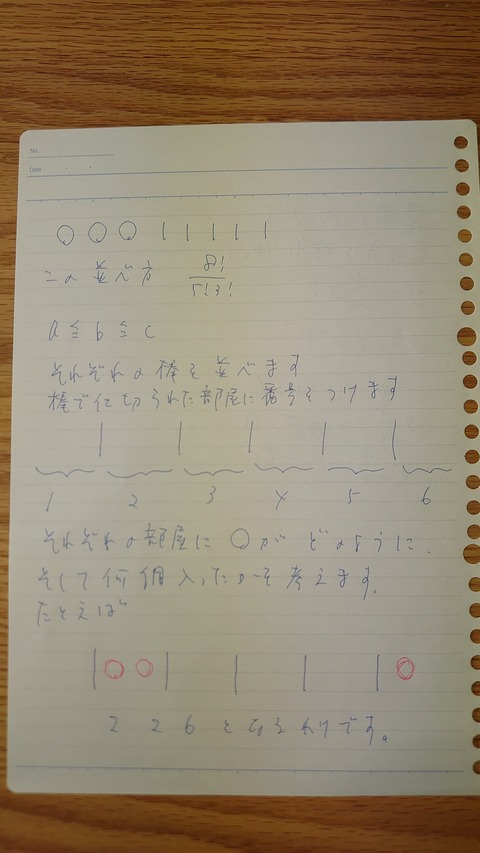 No.
Date
○ ○ ○ | | | | |
この並べ方 8!/5!3!
a ≦ b ≦ c
それぞれの棒を並べます
棒で仕切られた部屋に番号をつけます
| | | | |
1 2 3 4 5 6
それぞれの部屋に ○が どのように、
そして何個入ったかを考えます。
たとえば
|○ ○| | | |○
2 2 6 となるわけです。